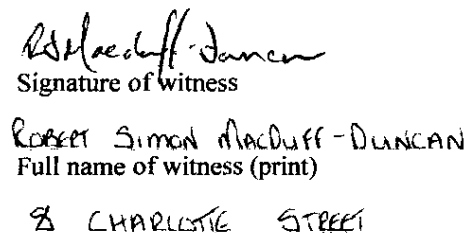 RS Macduff-Duncan
Signature of witness
ROBERT SIMON MACDUFF-DUNCAN
Full name of witness (print)
8 CHARLOTTE STREET